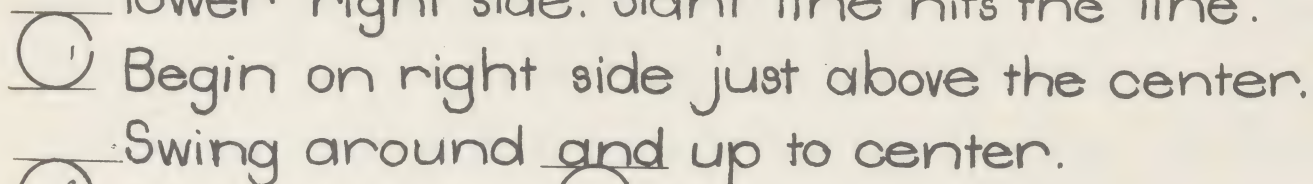 lower right side. Slant line hits the line.
Begin on right side just above the center.
Swing around and up to center.